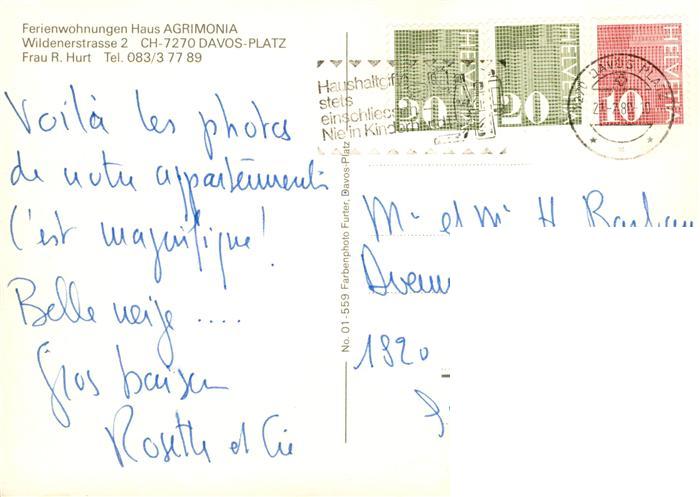 Ferienwohnungen Haus AGRIMONIA
Wildenerstrasse 2 CH-7270 DAVOS-PLATZ
Frau R. Hurt Tel. 083/3 77 89
Voilà les photos
de notre appartement
C'est magnifique!
Belle neige ....
Gros baiser
Rosette et Cie
No. 01-559 Farbenphoto Furter, Davos-Platz
Haushaltgift
stets
einschliess
Nie in Kinderh
20 HELVETIA
20 HELVETIA
10 HELVETIA
DAVOS-PLATZ
et H.
Aven
1820